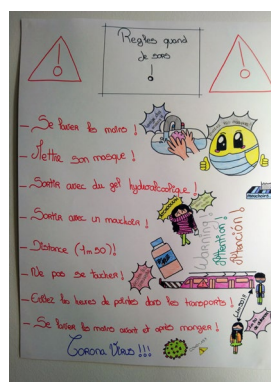 Regles quand
je sors
!
- Se laver les mains !
- Mettre son masque !
- Sortir avec du gel hydroalcoolique !
- Sortir avec un mouchoir !
- Distance (1m50)!
- Ne pas se toucher !
- Evitez les heures de pointes dans les transports !
- Se laver les mains avant et après manger !
Corona Virus !!!
Warning!
Attention!